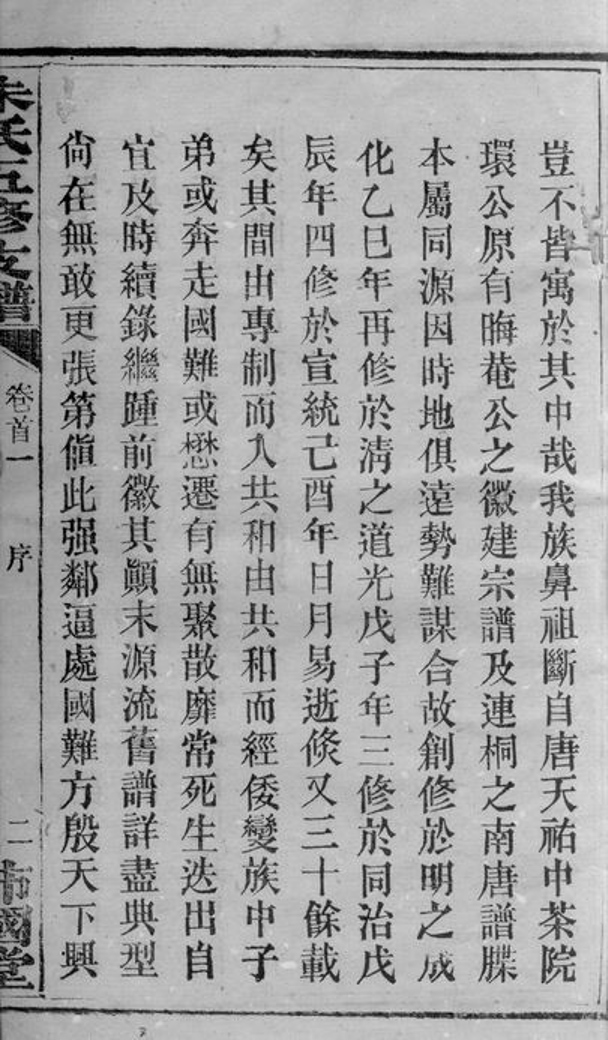 豈不皆寓於其中哉我族鼻祖斷自唐天祐中茶院
環公原有晦菴公之徽建宗譜及連桐之南唐譜牒
本屬同源因時地俱遠勢難謀合故創修於明之成
化乙巳年再修於清之道光戊子年三修於同治戊
辰年四修於宣統己酉年日月易逝倐又三十餘載
矣其間由專制而入共和由共和而經倭變族中子
弟或奔走國難或懋遷有無聚散靡常死生迭出自
宜及時續錄繼踵前徽其顚末源流舊譜詳盡典型
尙在無敢更張第值此强鄰逼處國難方殷天下興
朱氏五修支譜
卷首一
序
二
國堂